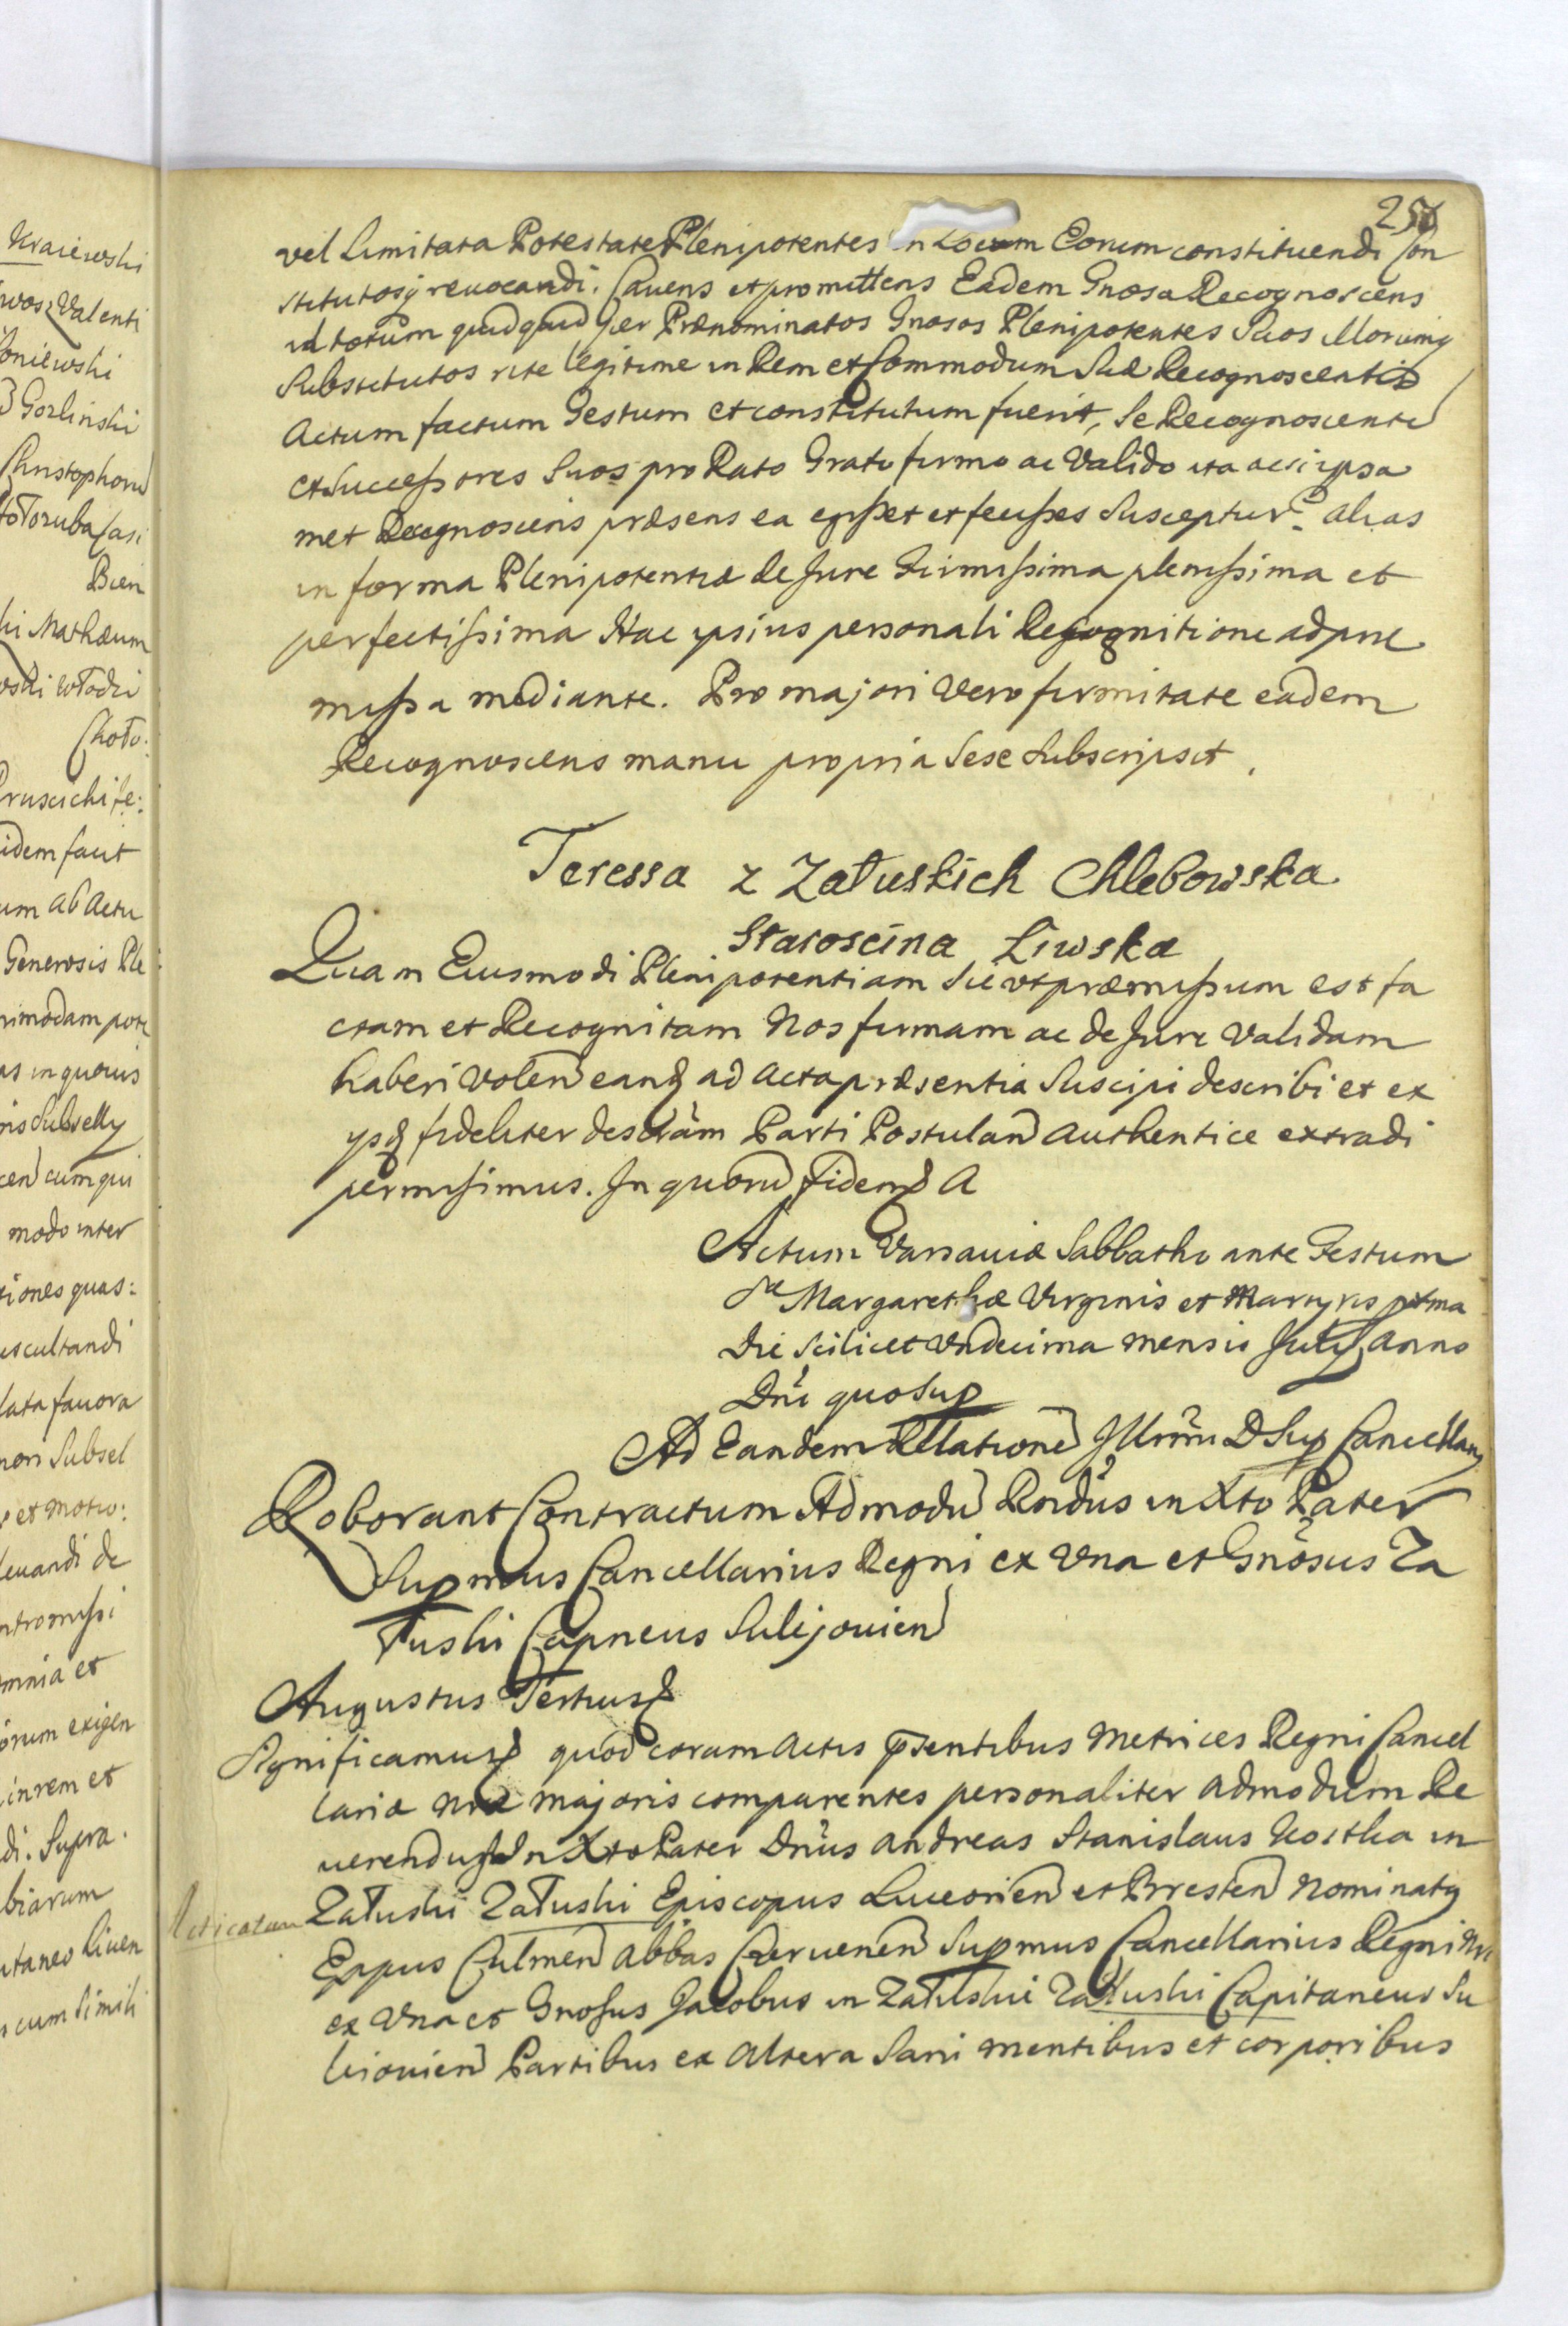 Kraiewski
wos: Valenti
oniewski
Gorlinski
Christophoru
Bien
ki Mathæum
wski Włodzi
Choto:
Pruscicki fe:
idem facit
um ab Actu
Generosis Ple
nimodam pote
as in quovis
ris Subselly
cen cum qui
modo inter
tiones quas:
escultandi
lata favora
nori Subsel
et motio:
levandi de
ntromissi
omnia et
orum exigen
in rem et
di. Supra.
biarum
itaneo Liven
cum Simili
25
vel Limitata Potestate Plenipotentes in Locum Eorum constituendi Con
stitutosq revocandi. Cavens et promittens Eadem Gnosa Recognoscens
id totum quidquid per Prænominatos Gnosos Plenipotentes Suos Illorumq
Substitutos rite legitime in Rem et Commodum Suæ Recognoscentis
Actum factum Gestum et constitutum fuerit, Se Recognoscente
et Successores Suos pro Rato Grato firmo ac Valido ita ac si ipsa
met Recognoscens præsens ea egisset et fecisset Susceptur. alias
in forma Plenipotentiæ de Jure firmissima plenissima et
perfectissima Hac ipsius personali Recognitione ad præ
missa mediante. Pro majori Vero firmitate eadem
Recognoscens manu propria Sese Subscripsit.
Teressa z Załuskich Chlebowska
Staroscina Liwska
Quam Eiusmodi Plenipotentiam Sic vt præmissum est fa
ctam et Recognitam Nos firmam ac de Jure Validam
haberi Volen eanq ad Acta præsentia Suscipi describi et ex
ysq fideliter descram Parti Postulan authentice extradi
permisimus. In quoru fidem A
Actum Varsaviæ Sabbatho ante Festum
Sæ Margarethæ Virginis et Martyris prma
Die scilicet Undecima mensis July Anno
Dni quo Sup
Ad Eandem Rllatione Illrmi D Sup Cancellary
Roborant Contractum Admodu Rndus in Xto Pater
Supmus Cancellarius Regni ex Vna et Gnosus Za
łuski Capneus Sulijovien
Augustus Tertius
Significamus quod coram Actis psentibus Metrices Regni Cancel
lariæ Nræ majoris comparentes personaliter Admodum Re
verendus In Xto Pater Dnus Andreas Stanislaus Kostka in
Załuski Załuski Episcopus Luceorien et Bresten Nominatq
Eppus Culmen Abbas Czervenen Supmus Cancellarius Regni Nri
ex Vna et Gnosus Jacobus in Załuskie Załuski Capitaneus Su
liiovien Partibus ex Altera Sani mentibus et corporibus